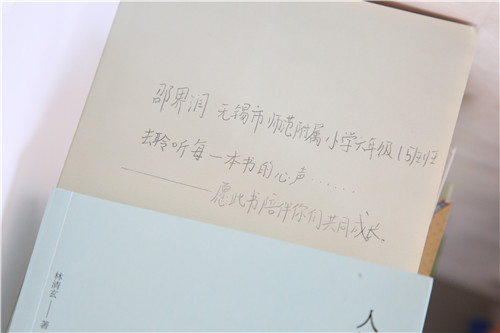 邵界润 无锡市师范附属小学六年级(5)班
去聆听每一本书的心声……
——愿此书陪伴你们共同成长
林清玄——著
人